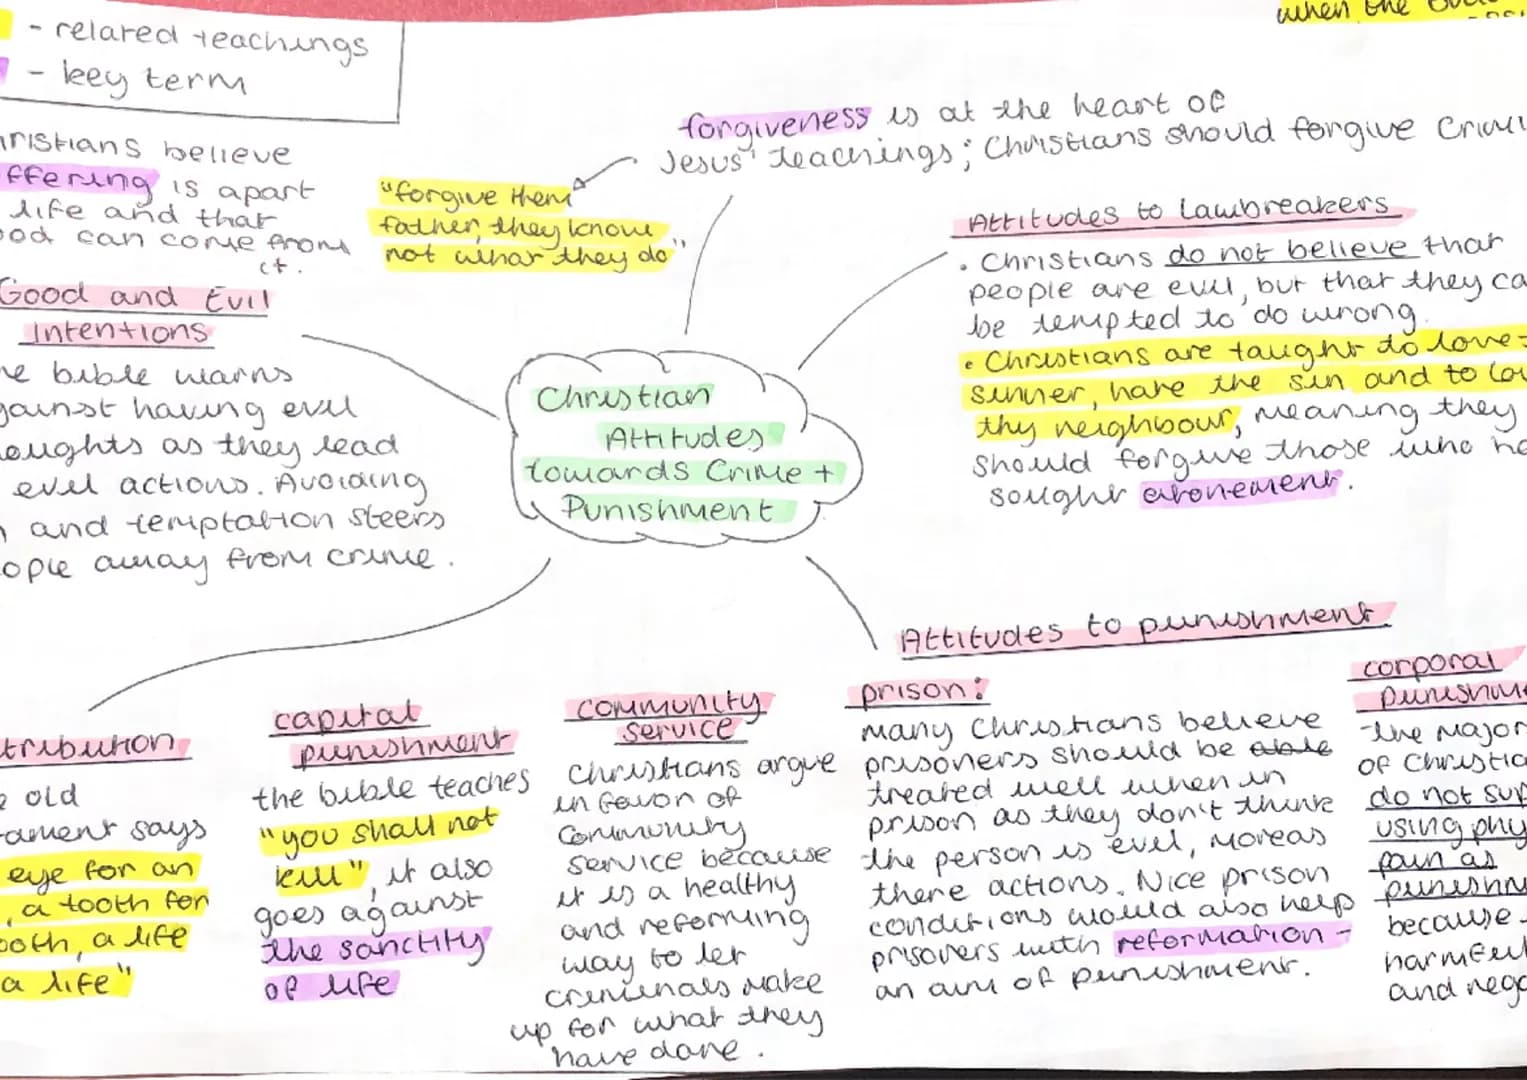 - related teachings
- key term
when the
forgiveness is at the heart of
Jesus' teachings; Christians should forgive
"forgive them
father, they know
not what they do"
christians believe
suffering is apart
life and that
good can come from
it.
Good and Evil
Intentions
the bible warns
against having evil
thoughts as they lead
evil actions. Avoiding
and temptation steers
people away from crime.
Attitudes to Lawbreakers
• Christians do not believe that
people are evil, but that they ca
be tempted to do wrong.
• Christians are taught to love
sinner, hate the sin and to lo
thy neighbour, meaning they
should forgive those who ha
sought atonement.
Christian
Attitudes
towards Crime +
Punishment
tribution
old
tament says
eye for an
, a tooth for
ooth, a life
a life"
capital
punishment
the bible teaches
"you shall not
kill", it also
goes against
the sanctity
of life
community
service
christians argue
in favor of
community
service because
it is a healthy
and reforming
way to let
criminals make
up for what they
have done.
Attitudes to punishment
prison:
many Christians believe
prisoners should be able
treated well when in
prison as they don't think
the person is evil, moreas
there actions. Nice prison
conditions would also help
prisoners with reformation -
an aim of punishment.
corporal
punishm
-the major
of Christia
do not sup
using phy
pain as
punishm
because
harmful
and nega